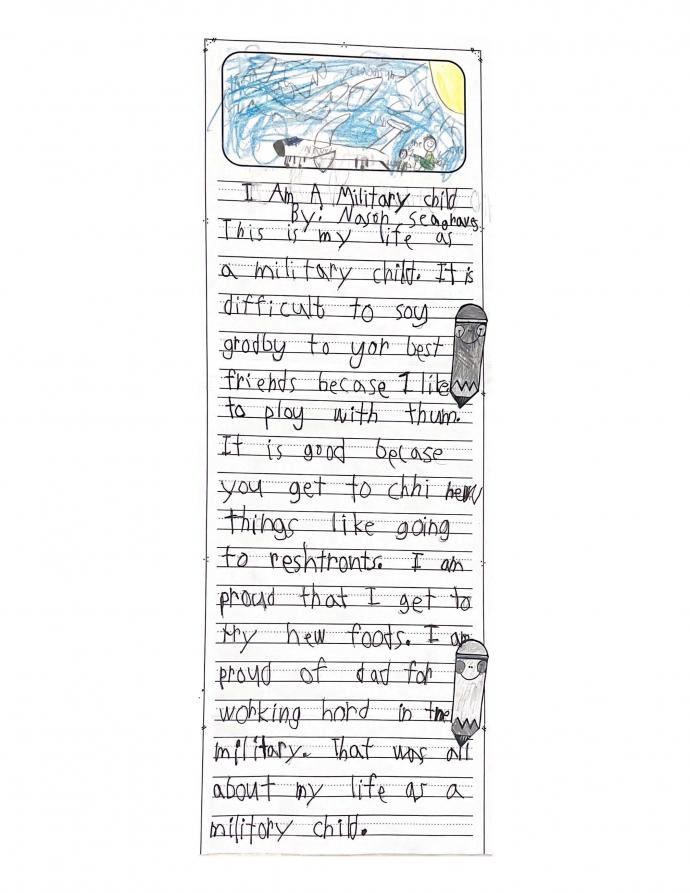 I Am A Military child
By: Nason Seagraves
This is my life as
a military child. It is
difficult to say
grodby to yor best
friends becase I like
to play with thum.
It is good becase
you get to chhi new
things like going
to reshtronts. I am
proud that I get to
try new foods. I am
proud of dad for
working hard in the
military. That was all
about my life as a
military child.